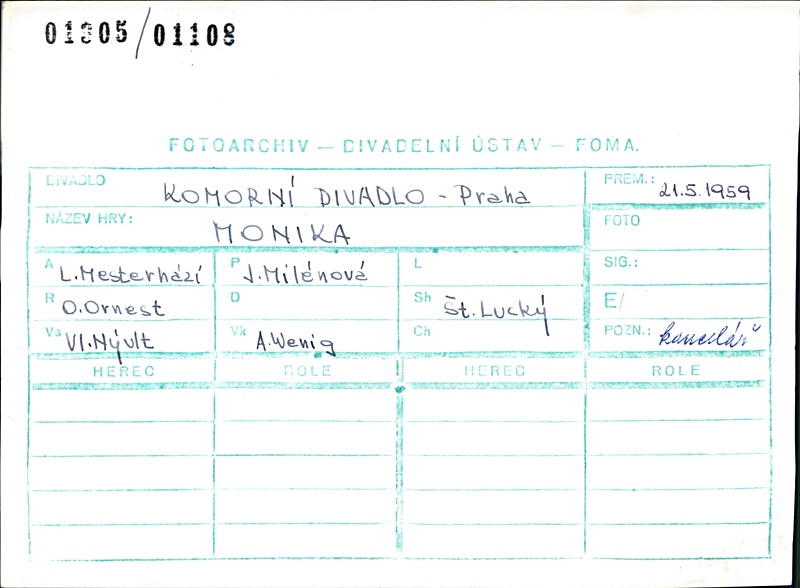 01305/01108
FOTOARCHIV — DIVADELNÍ ÚSTAV — FOMA.
DIVADLO KOMORNÍ DIVADLO - Praha PREM.: 21.5.1959
NÁZEV HRY: MONIKA FOTO
A L.Mesterházi P J.Milénová L SIG.:
R O.Ornest D Sh Št.Lucký E/
Vs Vl.Nývlt Vk A.Wenig Ch POZN.: kancelář
HEREC ROLE HEREC ROLE